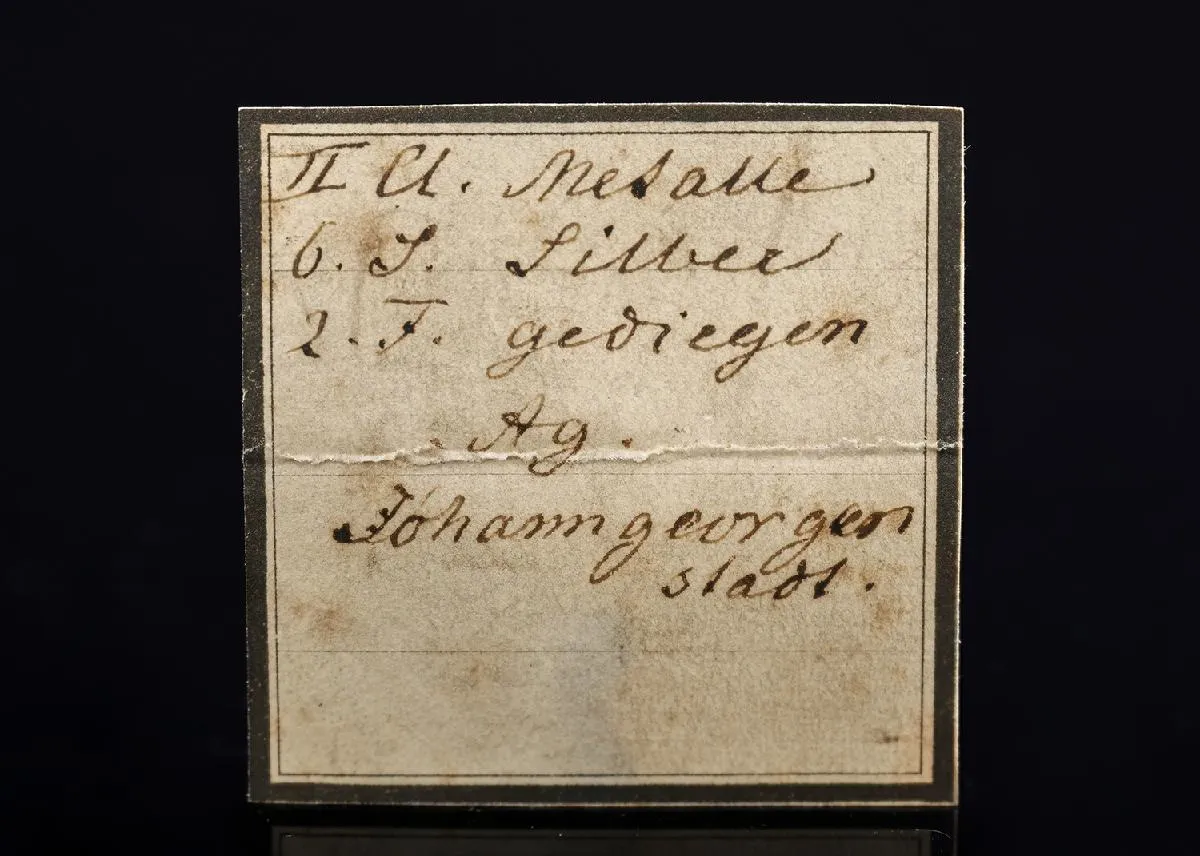 II Cl. Metalle
6. S. Silber
2. F. gediegen
Ag.
Johanngeorgen
stadt.